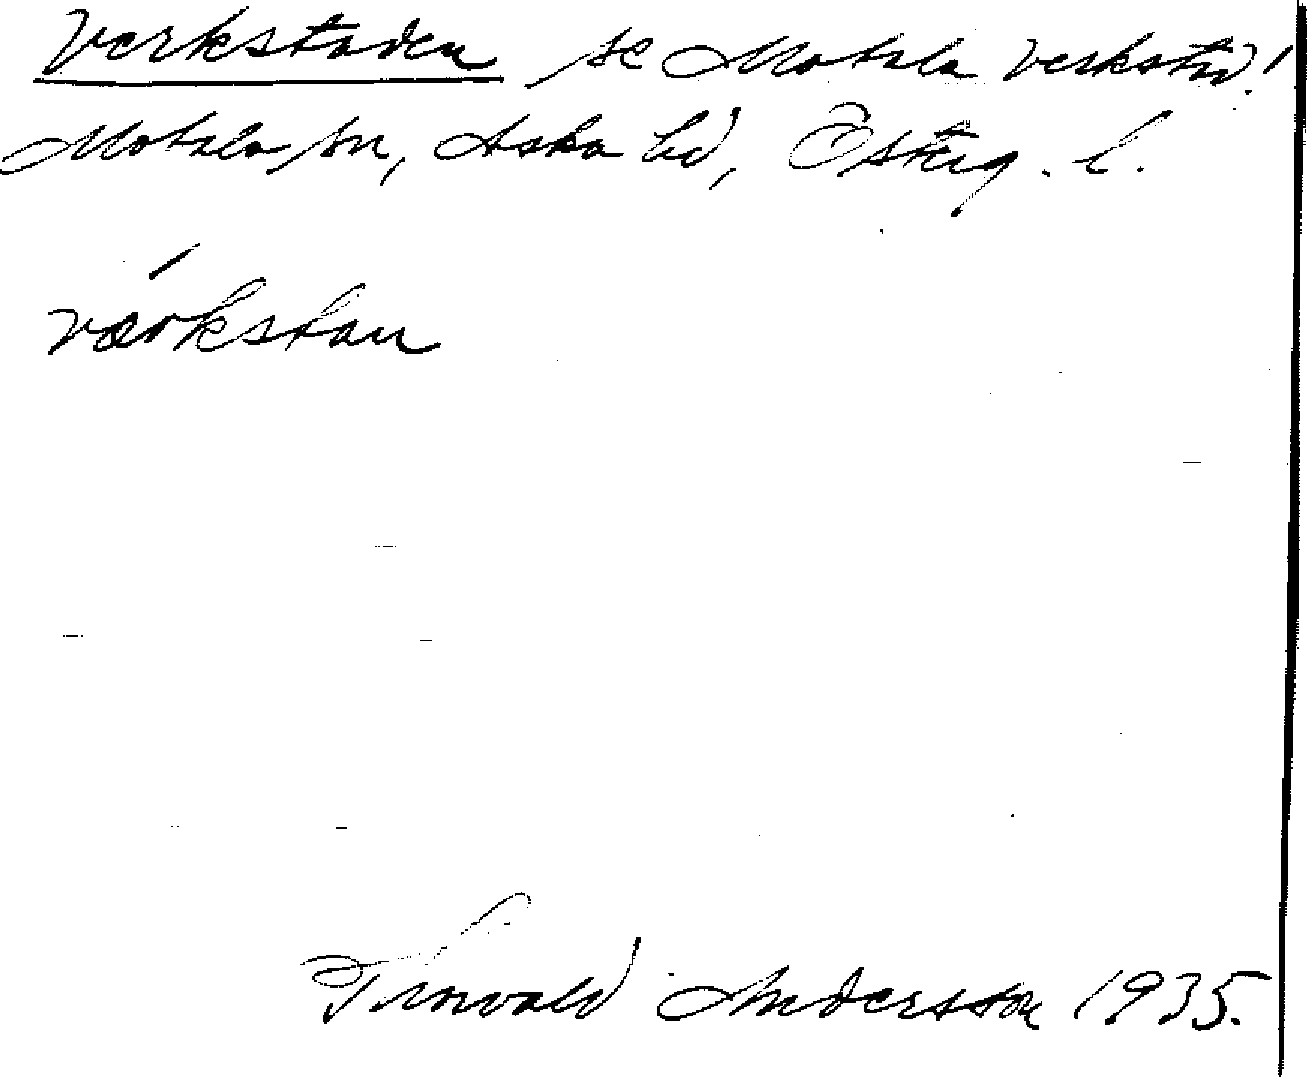 Verkstaden se Motala verkstad!
Motala sn, Aska hd, Österg. l.
værkstan
Thorvald Andersson 1935.